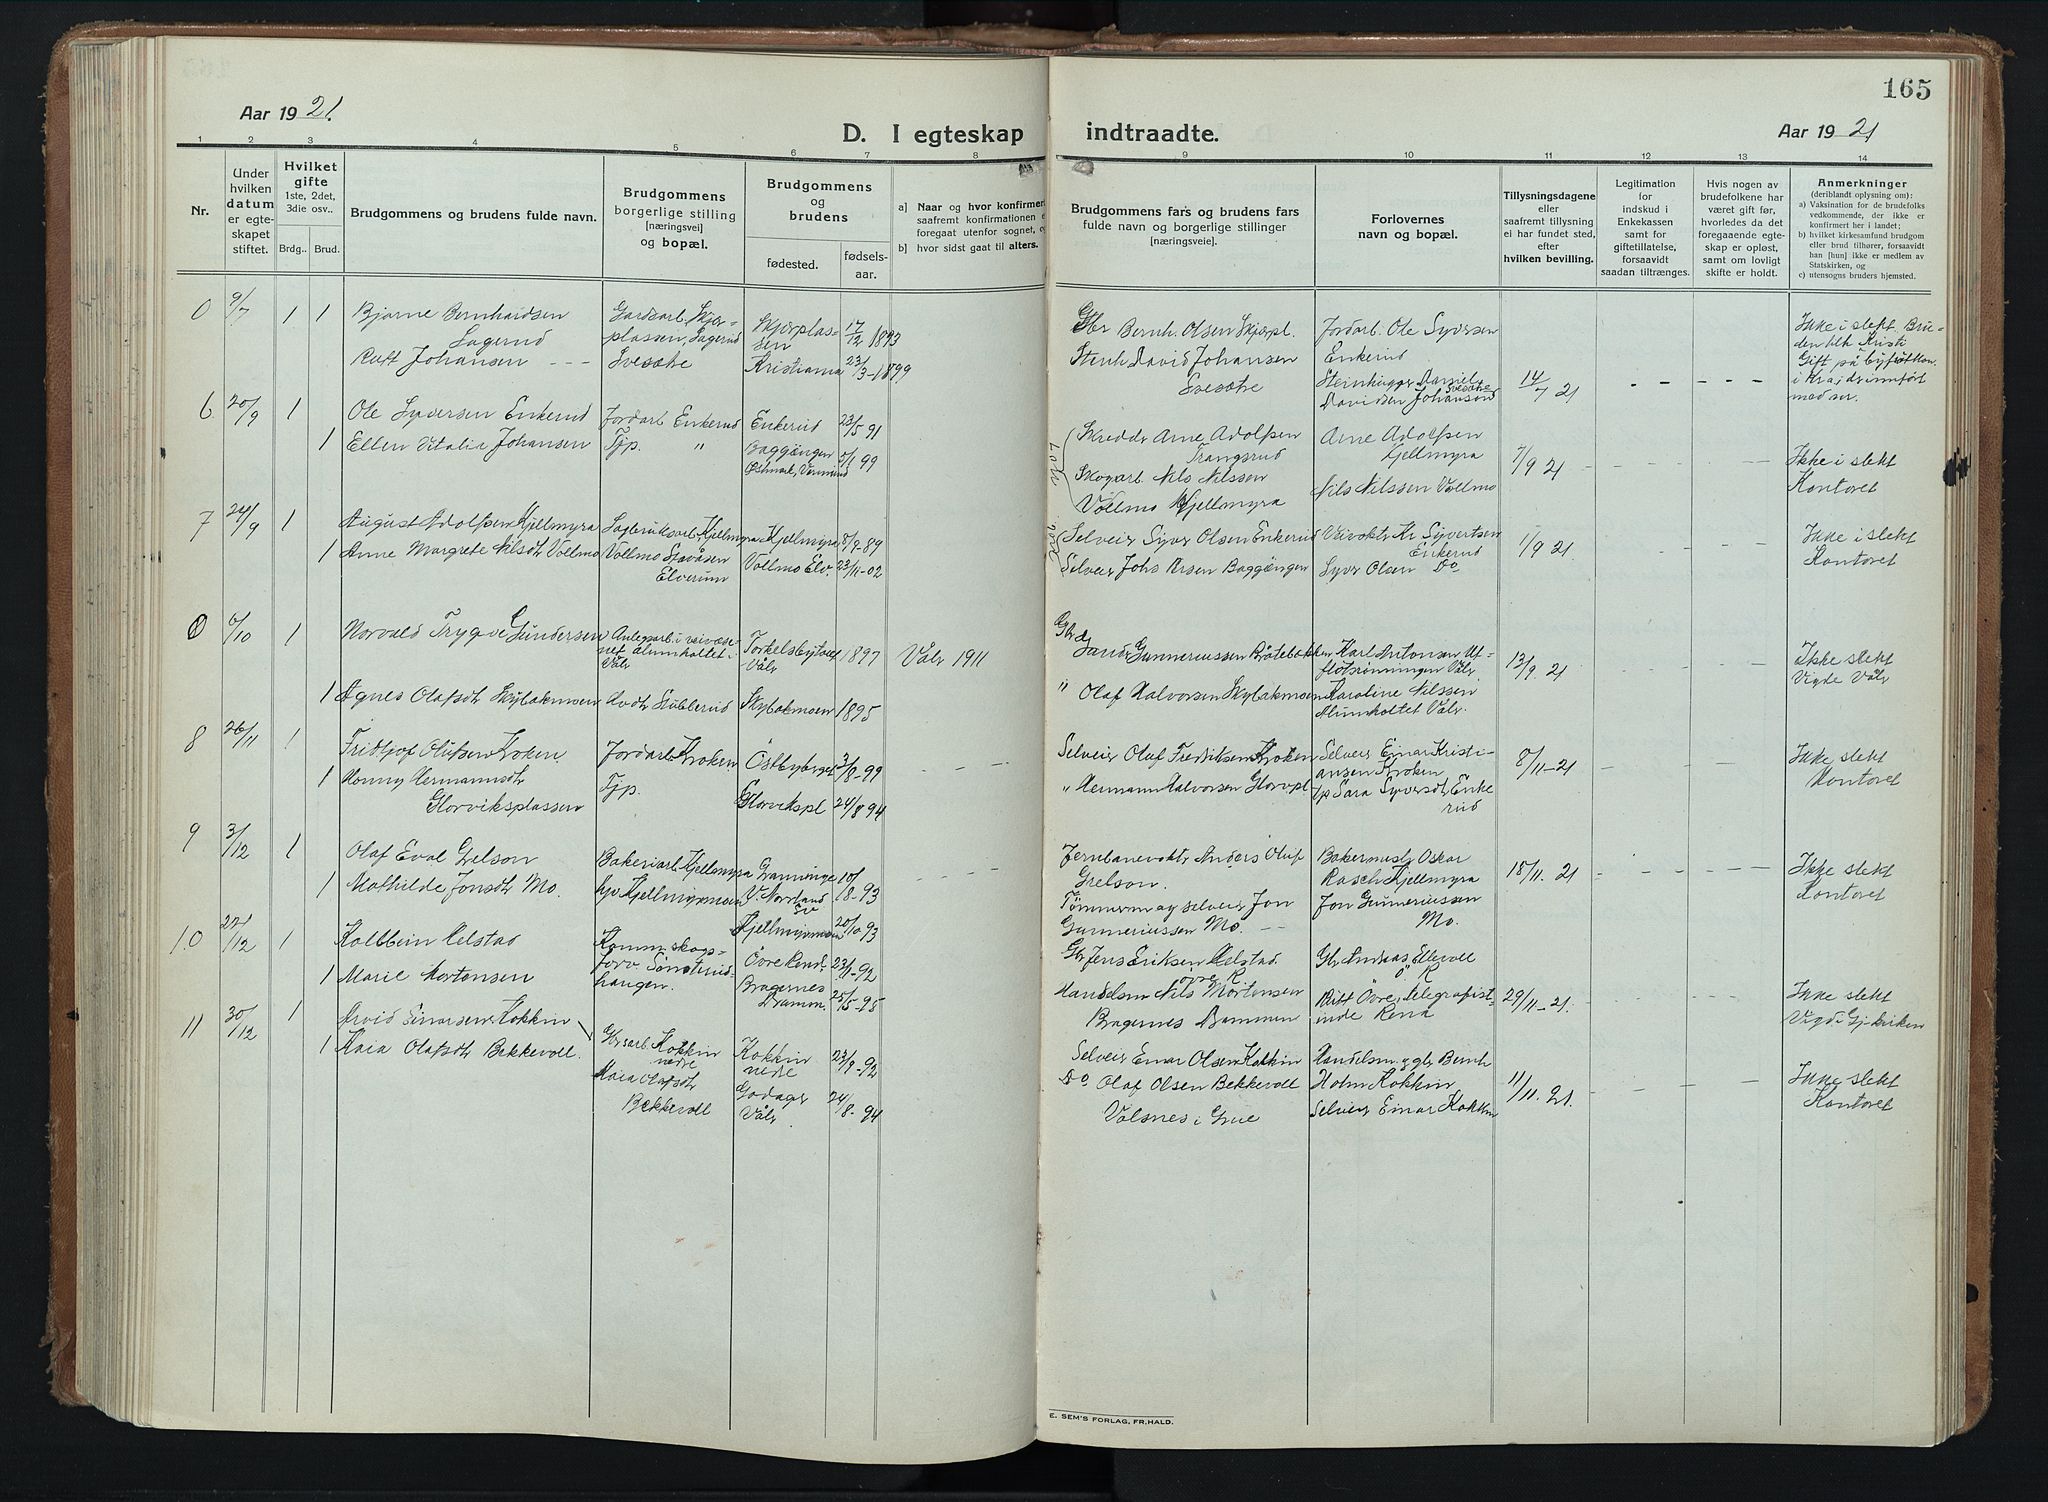 165
Aar 1921.
D. I egteskap indtraadte.
Aar 1921
1 2 3 4 5 6 7 8 9 10 11 12 13 14
Nr.
Under
hvilken
datum
er egte-
skapet
stiftet.
Hvilket
gifte
1ste, 2det,
3die osv..
Brdg..
Brud.
Brudgommens og brudens fulde navn.
Brudgommens
borgerlige stilling
[næringsvei]
og bopæl.
Brudgommens
og
brudens
fødested.
fødsels-
aar.
a] Naar og hvor konfirmert
saafremt konfirmationen e
foregaat utenfor sognet, og
b] hvor sidst gaat til alters.
Brudgommens fars og brudens fars
fulde navn og borgerlige stillinger
[næringsveie].
Forlovernes
navn og bopæl.
Tillysningsdagene
eller
saafremt tillysning
ei har fundet sted,
efter
hvilken bevilling.
Legitimation
for
indskud i
Enkekassen
samt for
giftetillatelse,
forsaavidt
saadan tiltrænges.
Hvis nogen av
brudefolkene har
været gift før,
hvorledes da det
foregaaende egte-
skap er opløst,
samt om lovligt
skifte er holdt.
Anmerkninger
(deriblandt oplysning om):
a) Vaksination for de brudefolks
vedkommende, der ikke er
konfirmert her i landet;
b) hvilket kirkesamfund brudgom
eller brud tilhører, forsaavidt
han [hun] ikke er medlem av
Statskirken, og
c) utensogns bruders hjemsted.
0 9/7 1 1 Bjarne Bernhardsen
Sagerud
Ruth Johansen - - -
Gardsarb. Skjær-
plassen, Sagerud
Svesæhe
Skjærplas-
sen
17/12 1893
Kristiania 23/3-1899
Gbr Bernh. Olsen Skjærpl.
Stenh David Johansen
Svesæhe
Jordarb. Ole Syversen
Enkerud
Steinhugger Daniel
Davidsen Johansen
14/7 21
Ikke i slekt. Bru-
den bla Kristi
Gift på byfoittkon.
i Kra, ds innført
med ser.
6 20/9 1 Ole Syversen Enkerud
1 Ellen Vitalia Johansen
Jordarb. Enkerud
Tjp. "
Enkerud 23/5 91
Baggängen
Östmark, Vermland
5/1 99
Skredder Arne Adolfsen
Trangsrud
Skogarb. Nils Nilssen
Vollmo Kjellmyra
Arne Adolfsen
Kjellmyra
Nils Nilssen Vollmo
7/9 21
Ikke i slekt
Kontoret
7 24/9 1 August Adolfsen Kjellmyra
1 Anne Margrete Nilsdt Vollmo
Sagbruksarb. Kjellmyra
Vollmo Stavåsen
Elverum
Kjellmyra 8/9-89
Vollmo Elv. 23/11-02
Selveier Syver Olsen Enkerud
Selveier Johs Arsen Baggängen
Veivokter Kr Syvertsen
Enkerud
Syver Olsen Do
1/9 21
Ikke i slekt
Kontoret
0 6/10 1 Norvald Trygve Gundersen
Anlegsarb. i veivæse-
net Alumholtet -
Våler
Torkelsbytorp
Våler
1897
Våler 1911
Gbr
Gunder Gunneriussen Bråtebakken
Karl Antonsen Ut-
flotsrönningen Våler
13/9 21
Ikke slekt
Vigde Våler
1 Agnes Olafsdt Skybakmoen
Hvdtr Stubberud
Skybakmoen 1895
" Olaf Halvorsen Skybakmoen
Karoline Nilssen
Alumholtet Våler.
8 26/11 1 Fridtjof Olufsen Kroken
1 Honny Hermannsdtr
Glorviksplassen
Jordarb. Kroken
Tjp.
Östbyberget 3/8-99
Glorvikspl 24/8 94
Selveier Olaf Fredriksen Kroken
" Hermann Halvorsen Glorvpl
Selveier Einar Kristi-
ansen Kroken
t/p Sara Syversdtr Enke
rud
8/11-21
Ikke slekt
Kontoret
9 3/12 1 Olaf Eval Grelson
1 Mathilde Jonsdt Mo.
Bakeriarb. Kjellmyra
hjv Kjellmyrmoen
Graninge
V. Norrland
Sv
10/8-93
Kjellmyrmoen 20/10 93
Jernbanevokter Anders Oluf
Grelson.
Tömmerm og selveier Jon
Gunneriussen Mo. - -
Bakermester Oskar
Rasch Kjellmyra
Jon Gunneriussen
Mo.
18/11. 21
Ikke slekt
Kontoret
10 27/12 1 Kolbbein Helstad
1 Marie Mortensen
Komm. skogs-
forv. Sönsterud-
haugen.
Övre Rend. 23/1-92
Bragernes
Dramm.
25/5-95
Gbr Jens Eriksen Helstad
övre R
Handelsm Nils Mortensen
Bragernes Drammen
Gbr Andreas Ellevoll
Ö R
Ritt Övre, Telegrafist-
inde Rena
29/11-21.
Ikke slekt
Vigd i Gj-kirken
11 30/12 1 Arvid Einarsen Kokkin
1 Maia Olafsdtr Bekkevoll.
Gbrsarb. Kokkin
nedre
Maia Olafsdtr
Bekkevoll
Kokkin
nedre
23/9-92
Godager
Våler.
24/8-94
Selveier Einar Olsen Kokkin
Do Olaf Olsen Bekkevoll
Volsnes i Grue
Handelsm. og gbr Bernh
Holm Kokkin
Selveier Einar Kokkin
11/11. 21.
Ikke slekt
Kontoret
E. SEM'S FORLAG, FR.HALD.